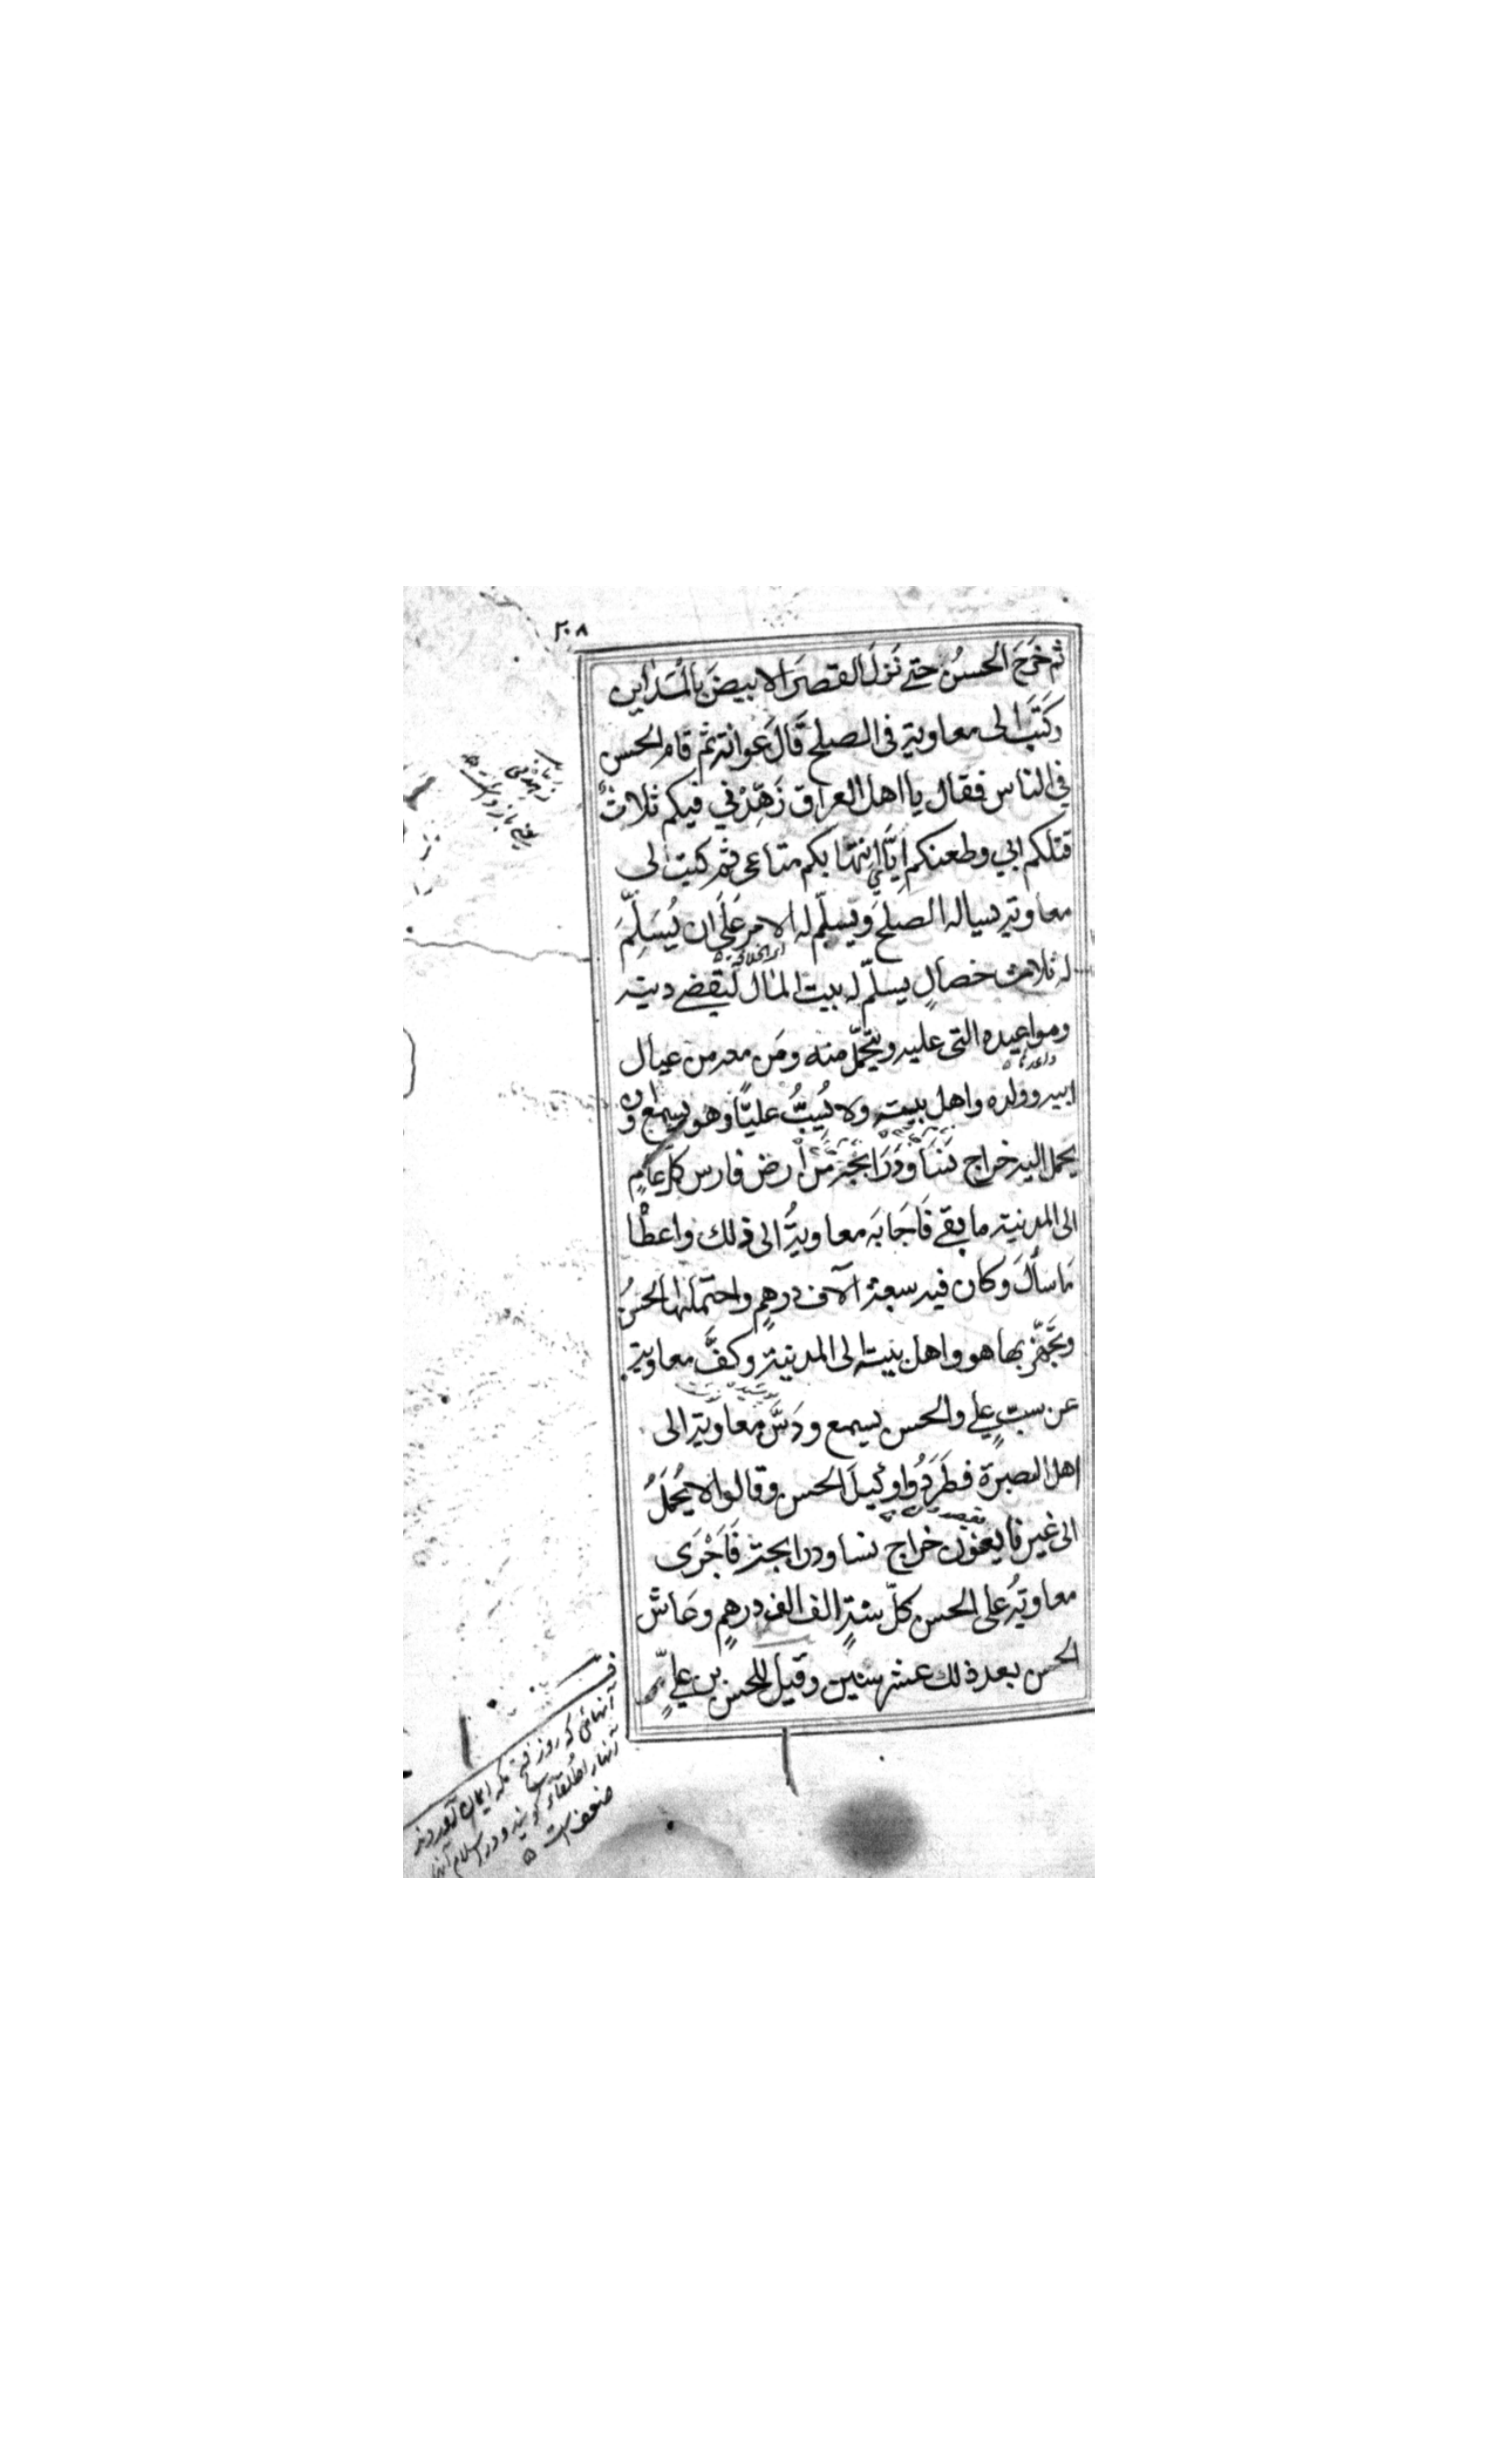 ٢٠٨
ثم خَرَجَ الحسنُ حتے نَزلَ القصرَ الابيضَ بالمَدَاين
وكَتَبَ الى معاوية فى الصلح قَالَ عوانة ثم قام الحسن
في الناس فقال يا اهل العراق زَهّدْني فيكم ثلاثٌ
قتلكم ابي وطعنكم ايَّاي انتهابكم متاعى ثم كتب الى
معاوية يساله الصلحَ ويسلّم له الامر عَلَى ان يُسَلِّمَ
له ثلاث خصالٍ يسلّم له بيت المال ليقضے دينه
ومواعيده التى عليه ويتحمّل منه ومَن معه من عيال
ابيه وولده واهل بيته ولا يُسَبُّ عليّا وهو يسمع وان
يحمل اليه خراج نسَا ودَرَابجَرْ من أرض فارس كل عامٍ
الى المدينة ما بقے فَاَجَابَه معاويةُ الى ذلك واعطا
مَا سألَ وكان فيه سبعة آلاف درهمٍ واحتملها الحسنُ
وتَجَهّزَ بها هو واهل بيته الى المدينة وكفَّ معاوية
عن سبِّ علي والحسن يسمع ودَسَّ معاوية الى
اهل البصرة فطَرَدُوا وكيلَ الحسن وقالوا لا يُحْمَلُ
الى غيرنا يعنون خراج نسا ودرابجرْ فَاَجْرَى
معاويةُ على الحسن كلّ سنةٍ الف الف درهمٍ وعَاشَ
الحسن بعد ذلك عشر سنين وقيل للحسن بن عليٍّ
آنهائى كه روز فتح مكه ايمان آوردند
آنها را طلقاء گويند و در اسلام آنها
ضعف است